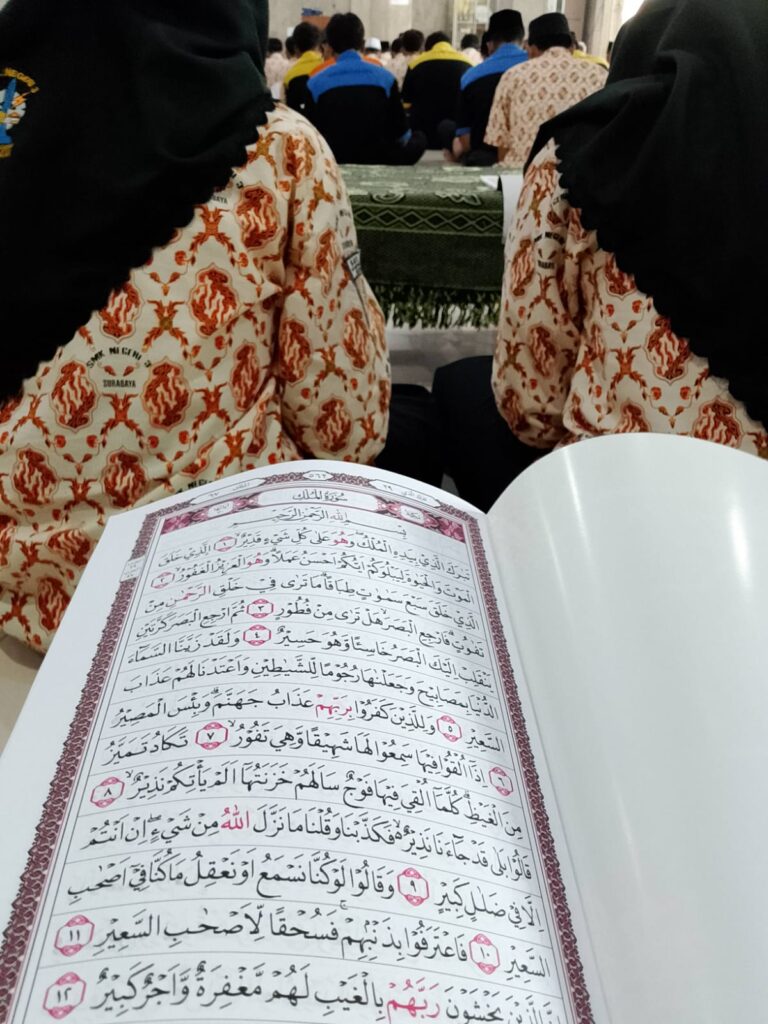 SMK NEGERI 3
SURABAYA
٥٦٢
سُوْرَةُ الْمُلْكِ
بِسْمِ اللّٰهِ الرَّحْمٰنِ الرَّحِيْمِ
تَبٰرَكَ الَّذِيْ بِيَدِهِ الْمُلْكُ وَهُوَ عَلٰى كُلِّ شَيْءٍ قَدِيْرٌۙ ١ الَّذِيْ خَلَقَ
الْمَوْتَ وَالْحَيٰوةَ لِيَبْلُوَكُمْ اَيُّكُمْ اَحْسَنُ عَمَلًاۗ وَهُوَ الْعَزِيْزُ الْغَفُوْرُۙ ٢
الَّذِيْ خَلَقَ سَبْعَ سَمٰوٰتٍ طِبَاقًاۗ مَا تَرٰى فِيْ خَلْقِ الرَّحْمٰنِ مِنْ
تَفٰوُتٍۗ فَارْجِعِ الْبَصَرَۙ هَلْ تَرٰى مِنْ فُطُوْرٍ ٣ ثُمَّ ارْجِعِ الْبَصَرَ كَرَّتَيْنِ
يَنْقَلِبْ اِلَيْكَ الْبَصَرُ خَاسِئًا وَّهُوَ حَسِيْرٌ ٤ وَلَقَدْ زَيَّنَّا السَّمَاۤءَ
الدُّنْيَا بِمَصَابِيْحَ وَجَعَلْنٰهَا رُجُوْمًا لِّلشَّيٰطِيْنِ وَاَعْتَدْنَا لَهُمْ عَذَابَ
السَّعِيْرِ ٥ وَلِلَّذِيْنَ كَفَرُوْا بِرَبِّهِمْ عَذَابُ جَهَنَّمَۗ وَبِئْسَ الْمَصِيْرُ
٦ اِذَآ اُلْقُوْا فِيْهَا سَمِعُوْا لَهَا شَهِيْقًا وَّهِيَ تَفُوْرُۙ ٧ تَكَادُ تَمَيَّزُ
مِنَ الْغَيْظِۗ كُلَّمَآ اُلْقِيَ فِيْهَا فَوْجٌ سَاَلَهُمْ خَزَنَتُهَآ اَلَمْ يَأْتِكُمْ نَذِيْرٌۙ ٨
قَالُوْا بَلٰى قَدْ جَاۤءَنَا نَذِيْرٌ ەۙ فَكَذَّبْنَا وَقُلْنَا مَا نَزَّلَ اللّٰهُ مِنْ شَيْءٍۖ اِنْ اَنْتُمْ
اِلَّا فِيْ ضَلٰلٍ كَبِيْرٍ ٩ وَقَالُوْا لَوْ كُنَّا نَسْمَعُ اَوْ نَعْقِلُ مَا كُنَّا فِيْٓ اَصْحٰبِ
السَّعِيْرِ ١٠ فَاعْتَرَفُوْا بِذَنْۢبِهِمْۚ فَسُحْقًا لِّاَصْحٰبِ السَّعِيْرِ ١١
اِنَّ الَّذِيْنَ يَخْشَوْنَ رَبَّهُمْ بِالْغَيْبِ لَهُمْ مَّغْفِرَةٌ وَّاَجْرٌ كَبِيْرٌ ١٢